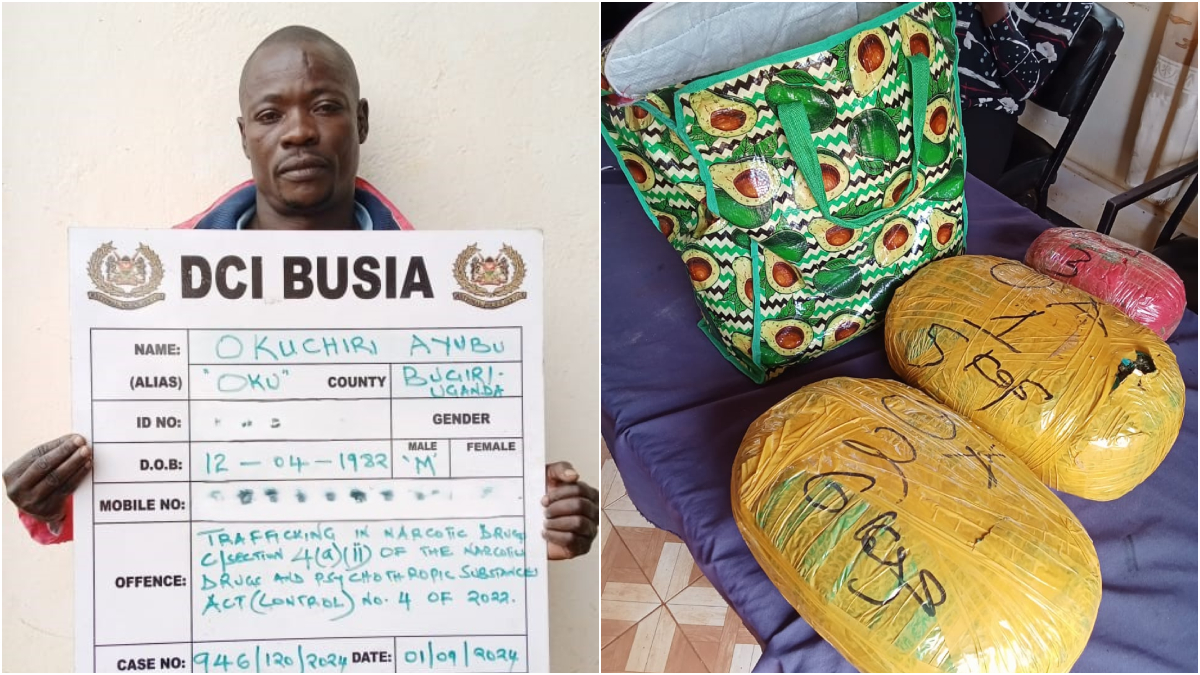 DCI BUSIA
NAME: OKUCHIRI AYUBU
(ALIAS) "OKU" COUNTY BUGIRI-
UGANDA
ID NO: GENDER
D.O.B: 12-04-1982 MALE "M" FEMALE
MOBILE NO:
OFFENCE: TRAFFICKING IN NARCOTIC DRUGS
C/SECTION 4(a)(ii) OF THE NARCOTIC
DRUGS AND PSYCHOTHROPIC SUBSTANCES
ACT (CONTROL) NO. 4 OF 2022.
CASE NO: 946/120/2024 DATE: 01/09/2024